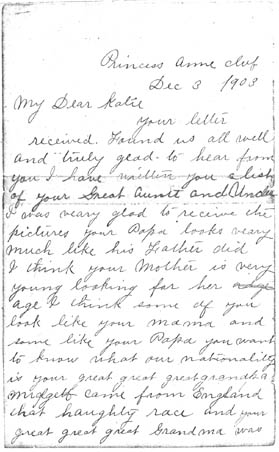 Princess Anne
Dec 3 1903
My Dear Katie
your letter
received. Found us all well
and truly glad to hear from
you I have written you a list
of your Great Aunts and Uncles
I was veary glad to receive the
pictures your Papa looks veary
much like his Father did
I think your Mother is very
young looking for her
age I think some of you
look like your mama and
some like your Papa you want
to know what our nationality
is your great great great grandpa
Midgett came from England
that haughty race and your
great great great Grandma was